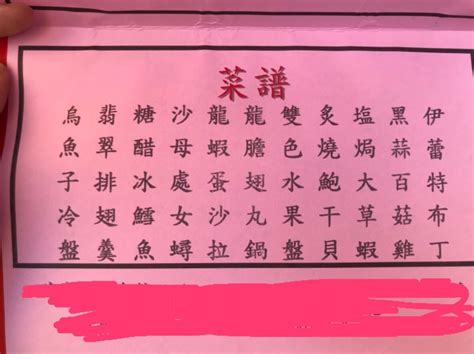 菜譜
烏魚子冷盤
翡翠排翅羹
糖醋冰鱈魚
沙母處女蟳
龍蝦蛋沙拉
龍膽翅丸鍋
雙色水果盤
炙燒鮑干貝
塩焗大草蝦
黑蒜百菇雞
伊蕾特布丁